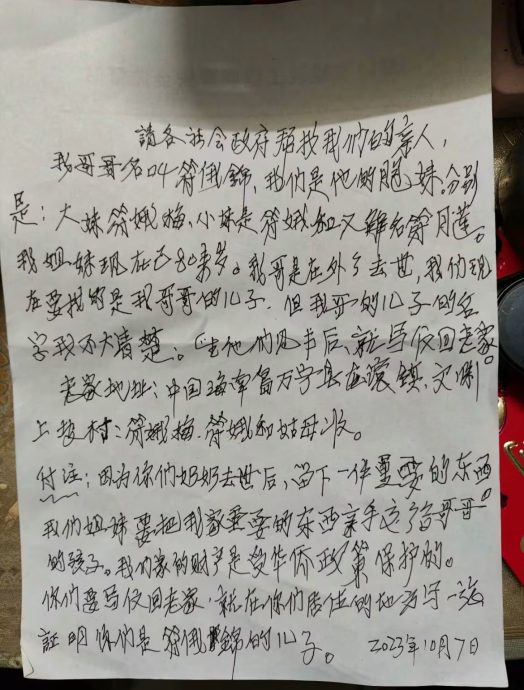 請各社会政府帮找我们的亲人，
我哥哥名叫符俄錦，我们是他的胞妹。分别
是：大妹符娥梅，小妹是符娥和又解名符月莲。
我姐妹现在已80来岁。我哥是在外了去世，我们现
在要找的是我哥哥的儿子，但我哥的儿子的名
字我不大清楚。他们见书后，就写仅回老家。
老家地址：中国海南省万宁县 镇，文渊
上坡村：符娥梅.符娥和姑母收。
付注：因为你们奶奶去世后，留下一件重要的东西。
我们姐妹要把我家重要的东西亲手送给哥哥
的孩子。我们家的财产是受华侨政策保护的。
你们要写仅回老家，就在你们居住的地方写一张
証明你们是符俄錦的儿子。 2023年10月7日